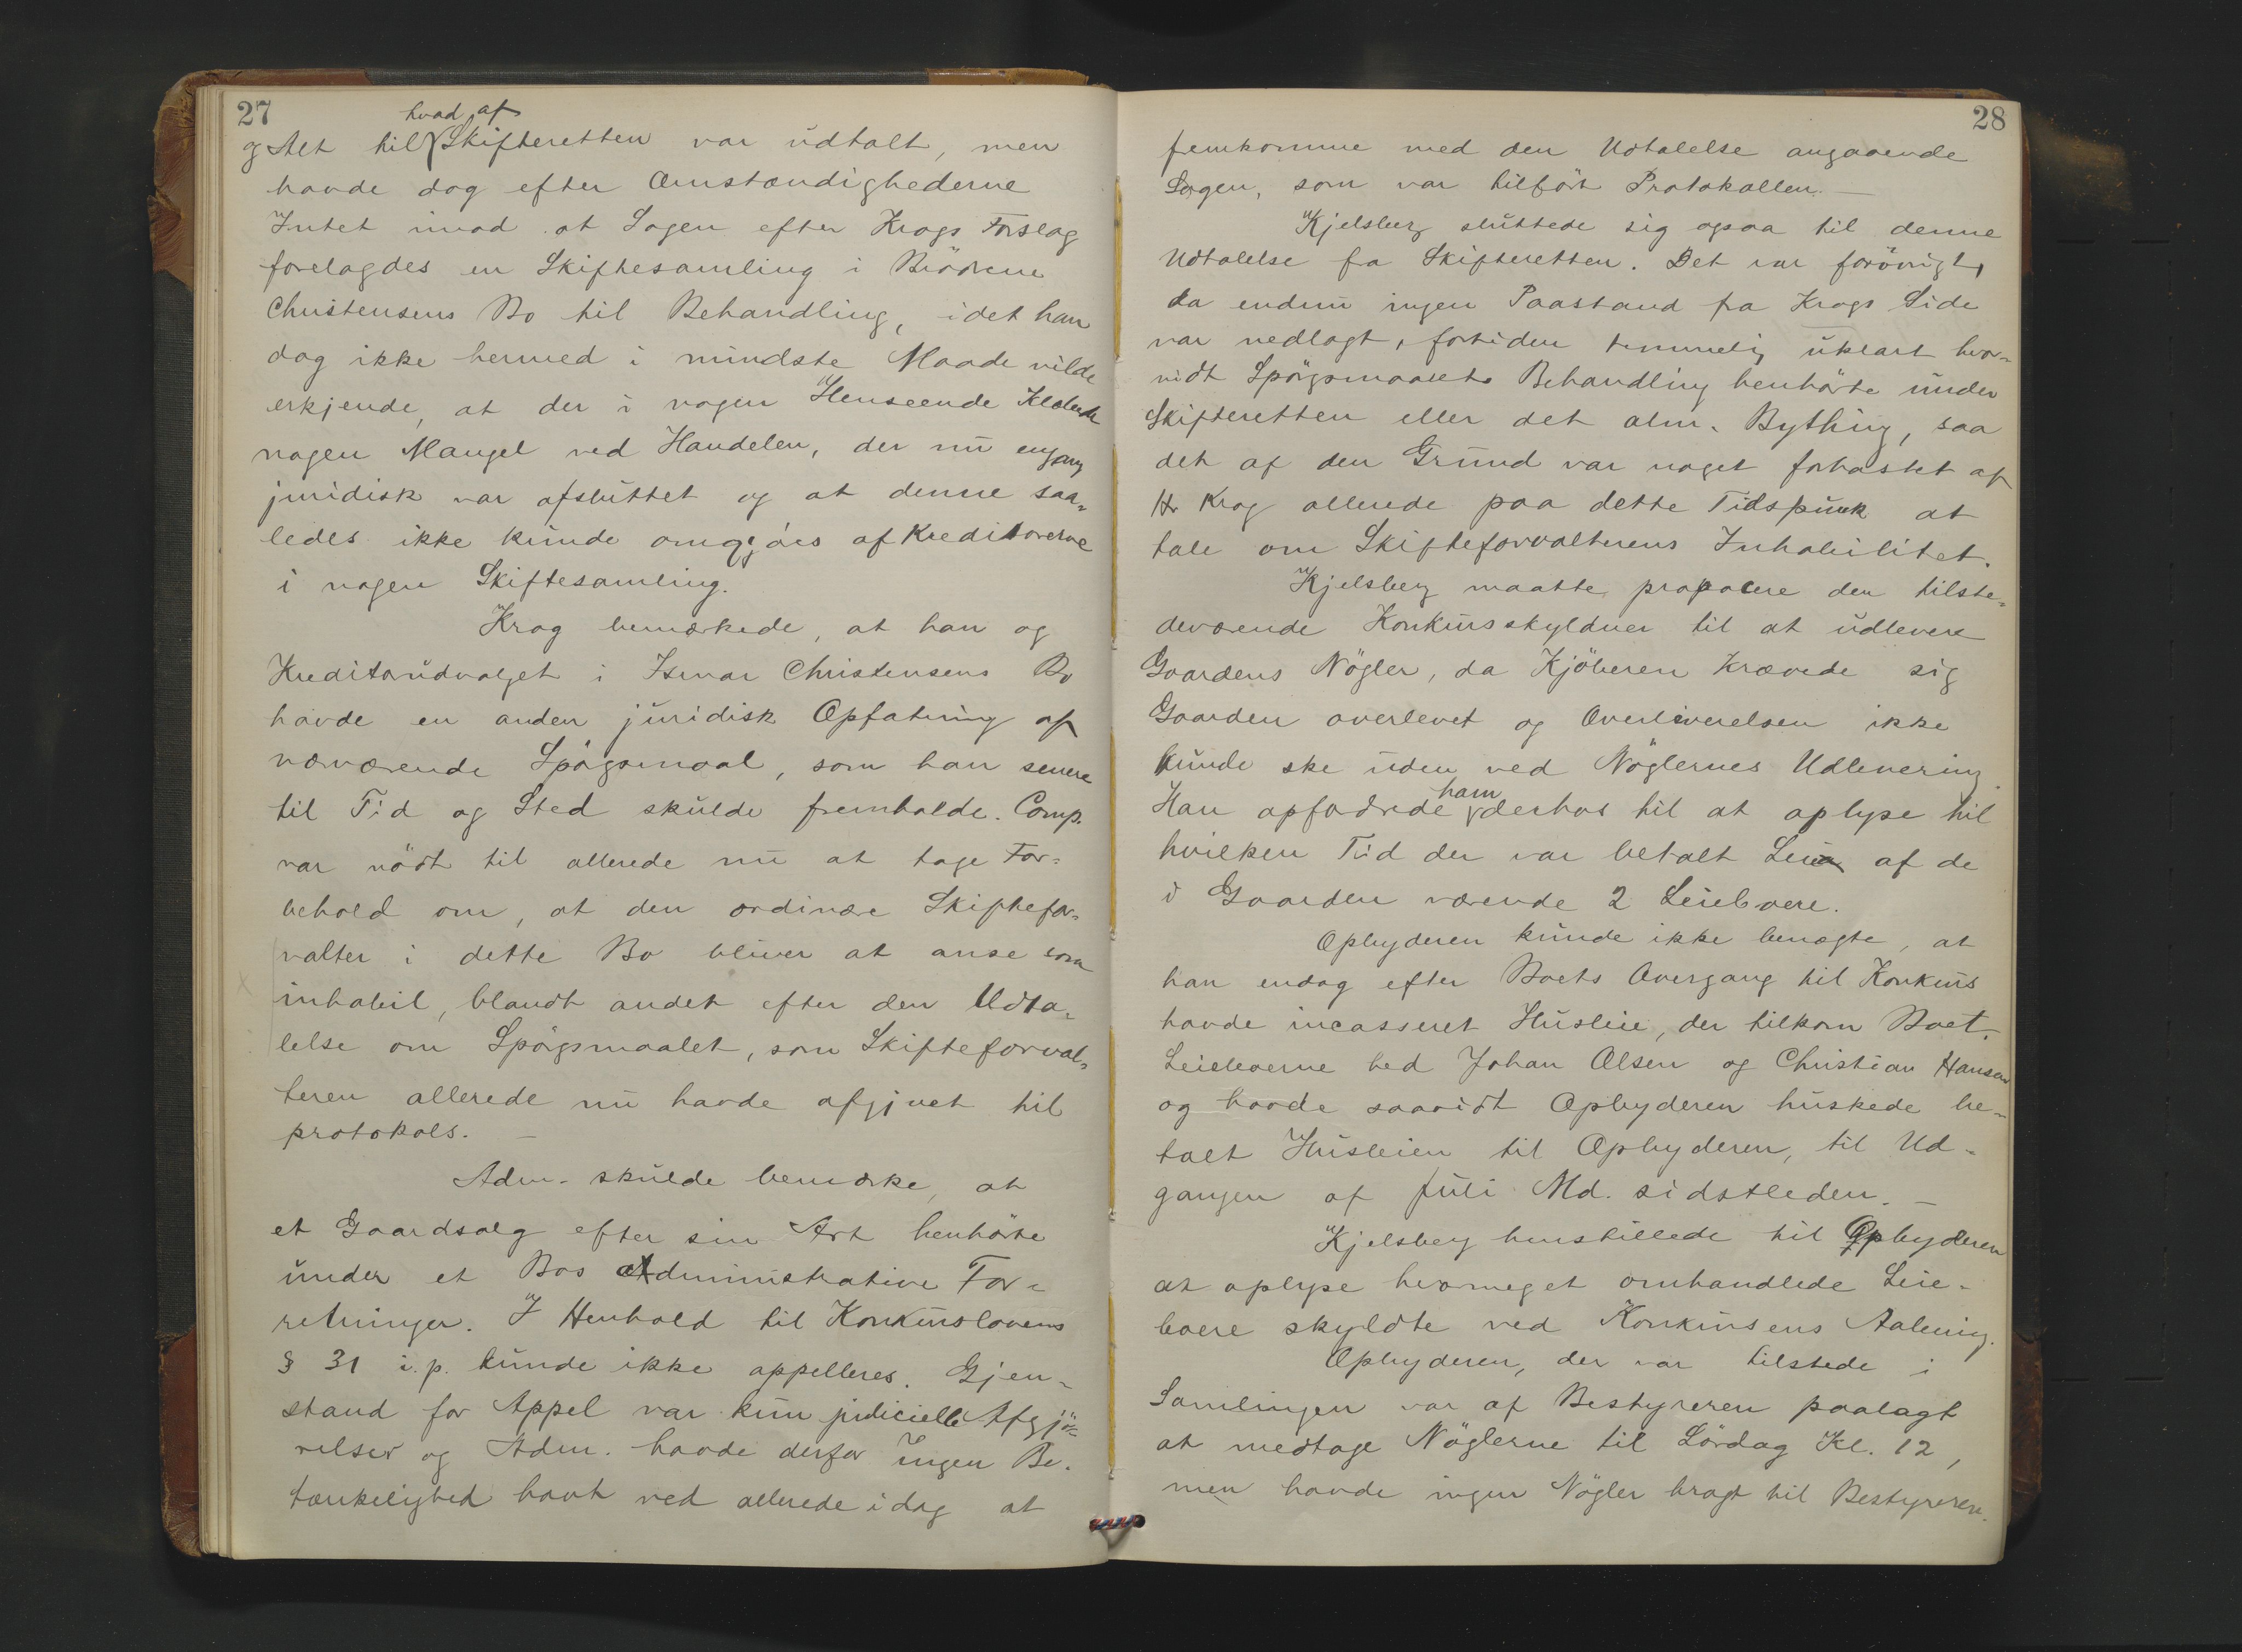 27
hvad af
g Alt til Skifteretten var udtalt, men
havde dog efter Omstændighederne
Intet imod at Sagen efter Krogs Forslag
forelagdes en Skiftesamling i Brödrene
Christensens Bo til Behandling, idet han
dog ikke hermed i mindste Maade vilde
erkjende, at der i nogen Henseende klæbede
nogen Mangel ved Handelen, der nu engang
juridisk var afsluttet og at denne saa-
ledes ikke kunde omgjöres af Kreditorerne
i nogen Skiftesamling.
Krog bemærkede, at han og
Kreditorudvalget i Ismar Christensens Bo
havde en anden juridisk Opfatning af
nærværende Spörgsmaal, som han senere
til Tid og Sted skulde fremholde. Comp.
var nödt til allerede nu at tage For-
behold om, at den ordinære Skiftefor-
valter i dette Bo bliver at anse som
inhabil, blandt andet efter den Udta-
lelse om Spörgsmaalet, som Skifteforval-
teren allerede nu havde afgivet til
protokols. —
Adm. skulde bemærke, at
et Gaardsalg efter sin Art henhörte
under et Bos Administrative For-
retninger. I Henhold til Konkurslovens
§ 31 i.p. kunde ikke appelleres. Gjen-
stand for Appel var kun judicielle Afgjö-
relser og Adm. havde derfor Ingen Be-
tænkelighed havt ved allerede idag at
28
fremkomme med den Udtalelse angaaende
Sagen, som var tilfört Protokollen. —
Kjelsberg sluttede sig ogsaa til denne
Udtalelse fra Skifteretten. Det var forövrigt,
da endnu ingen Paastand fra Krogs Side
var nedlagt, fortiden temmelig uklart hvor-
vidt Spörgsmaalets Behandling henhörte under
Skifteretten eller det alm. Bything, saa
det af den Grund var noget forhastet af
Hr Krog allerede paa dette Tidspunk at
tale om Skifteforvalterens Inhabilitet.
Kjelsberg maatte provocere den tilste-
deværende Konkursskyldner til at udlevere
Gaardens Nögler, da Kjöberen krævede sig
Gaarden overlevet og Overleverelsen ikke
kunde ske uden ved Nöglernes Udlevering.
ham
Han opfodrede derhos til at oplyse til
hvilken Tid der var betalt Leie af de
i Gaarden værende 2 Leieboere.
Opbyderen kunde ikke benægte, at
han endog efter Boets Overgang til Konkurs
havde incasseret Husleie, der tilkom Boet.
Leieboerne hed Johan Olsen og Christian Hansen
og havde saavidt Opbyderen huskede be-
talt Husleien til Opbyderen, til Ud-
gangen af Juli Md. sidstleden. —
Kjelsberg henstillede til Opbyderen
at oplyse hvormeget omhandlede Leie-
boere skyldte ved Konkursens Aabning.
Opbyderen, der var tilstede i
Samlingen var af Bestyreren paalagt
at medtage Nöglerne til Lördag Kl. 12,
men havde ingen Nögler bragt til Bestyreren.